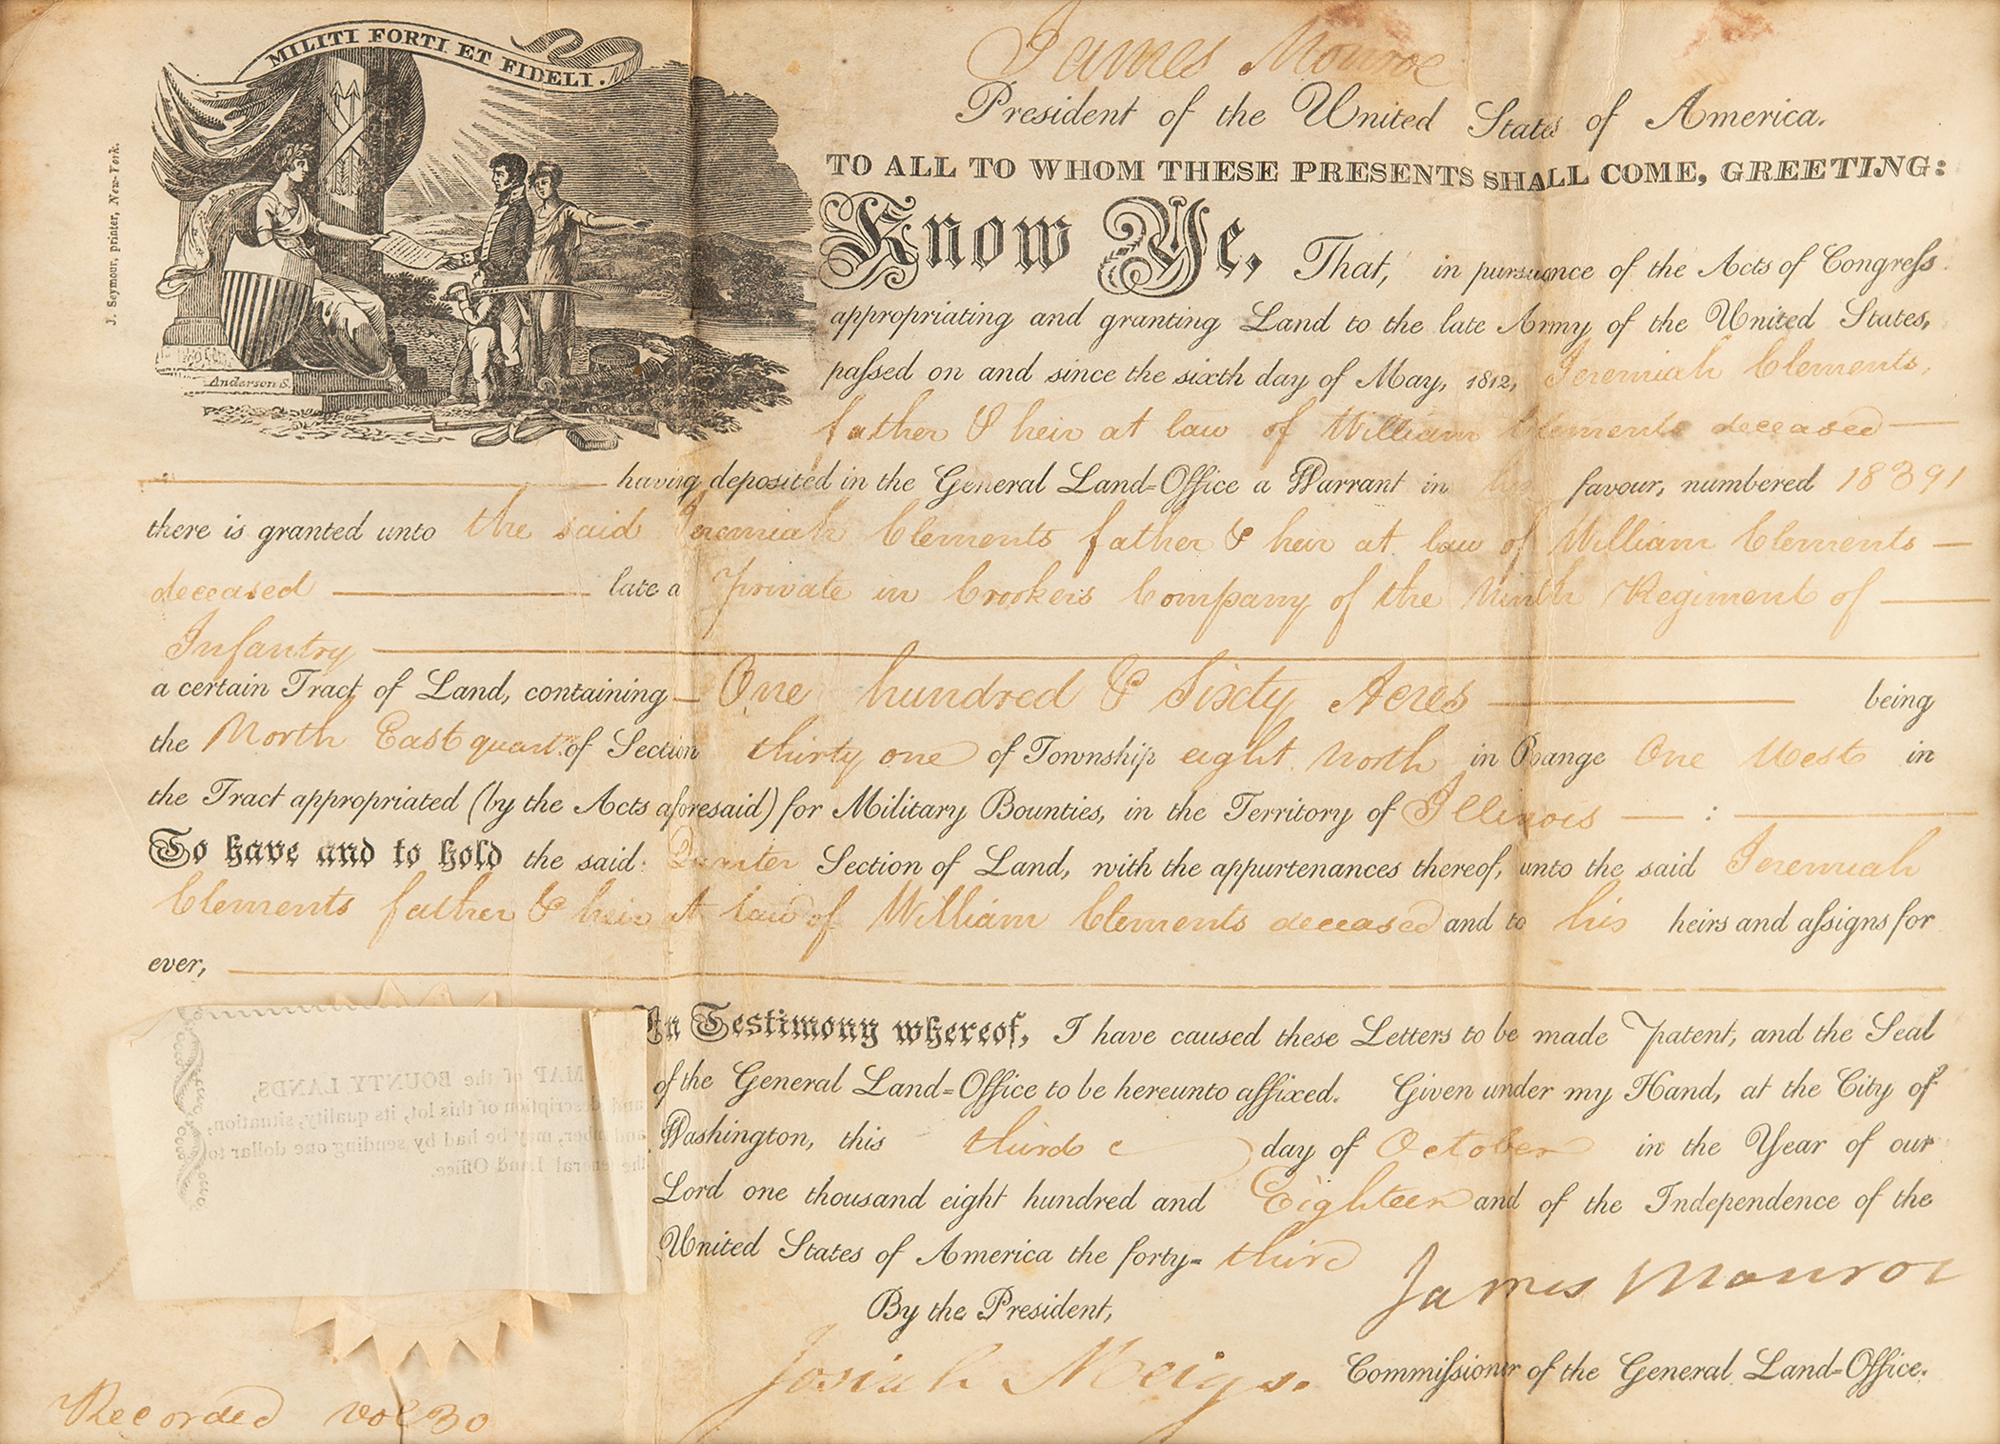 MILITI FORTI ET FIDELI.
J. Seymour, printer, New-York.
Anderson S.
James Monroe
President of the United States of America.
TO ALL TO WHOM THESE PRESENTS SHALL COME, GREETING:
Know Ye, That, in pursuance of the Acts of Congress
appropriating and granting Land to the late Army of the United States,
passed on and since the sixth day of May, 1812, Jeremiah Clements,
father & heir at law of William Clements deceased —
— having deposited in the General Land-Office a Warrant in his favour, numbered 18391
there is granted unto the said Jeremiah Clements father & heir at law of William Clements —
deceased — late a Private in Crooker's Company of the Ninth Regiment of —
Infantry —
a certain Tract of Land, containing — One hundred & Sixty Acres — being
the North East quart. of Section thirty one of Township eight North in Range One West in
the Tract appropriated (by the Acts aforesaid) for Military Bounties, in the Territory of Illinois — : —
To have and to hold the said Quarter Section of Land, with the appurtenances thereof, unto the said Jeremiah
Clements father & heir at law of William Clements deceased and to his heirs and assigns for
ever, —
In Testimony whereof, I have caused these Letters to be made Patent, and the Seal
of the General Land-Office to be hereunto affixed. Given under my Hand, at the City of
Washington, this third day of October in the Year of our
Lord one thousand eight hundred and Eighteen and of the Independence of the
United States of America the forty-third
By the President,
James Monroe
Josiah Meigs. Commissioner of the General Land-Office.
MAP of the BOUNTY LANDS,
and description of this lot, its quality, situation,
and number, may be had by sending one dollar to
the General Land Office.
Recorded vol 30